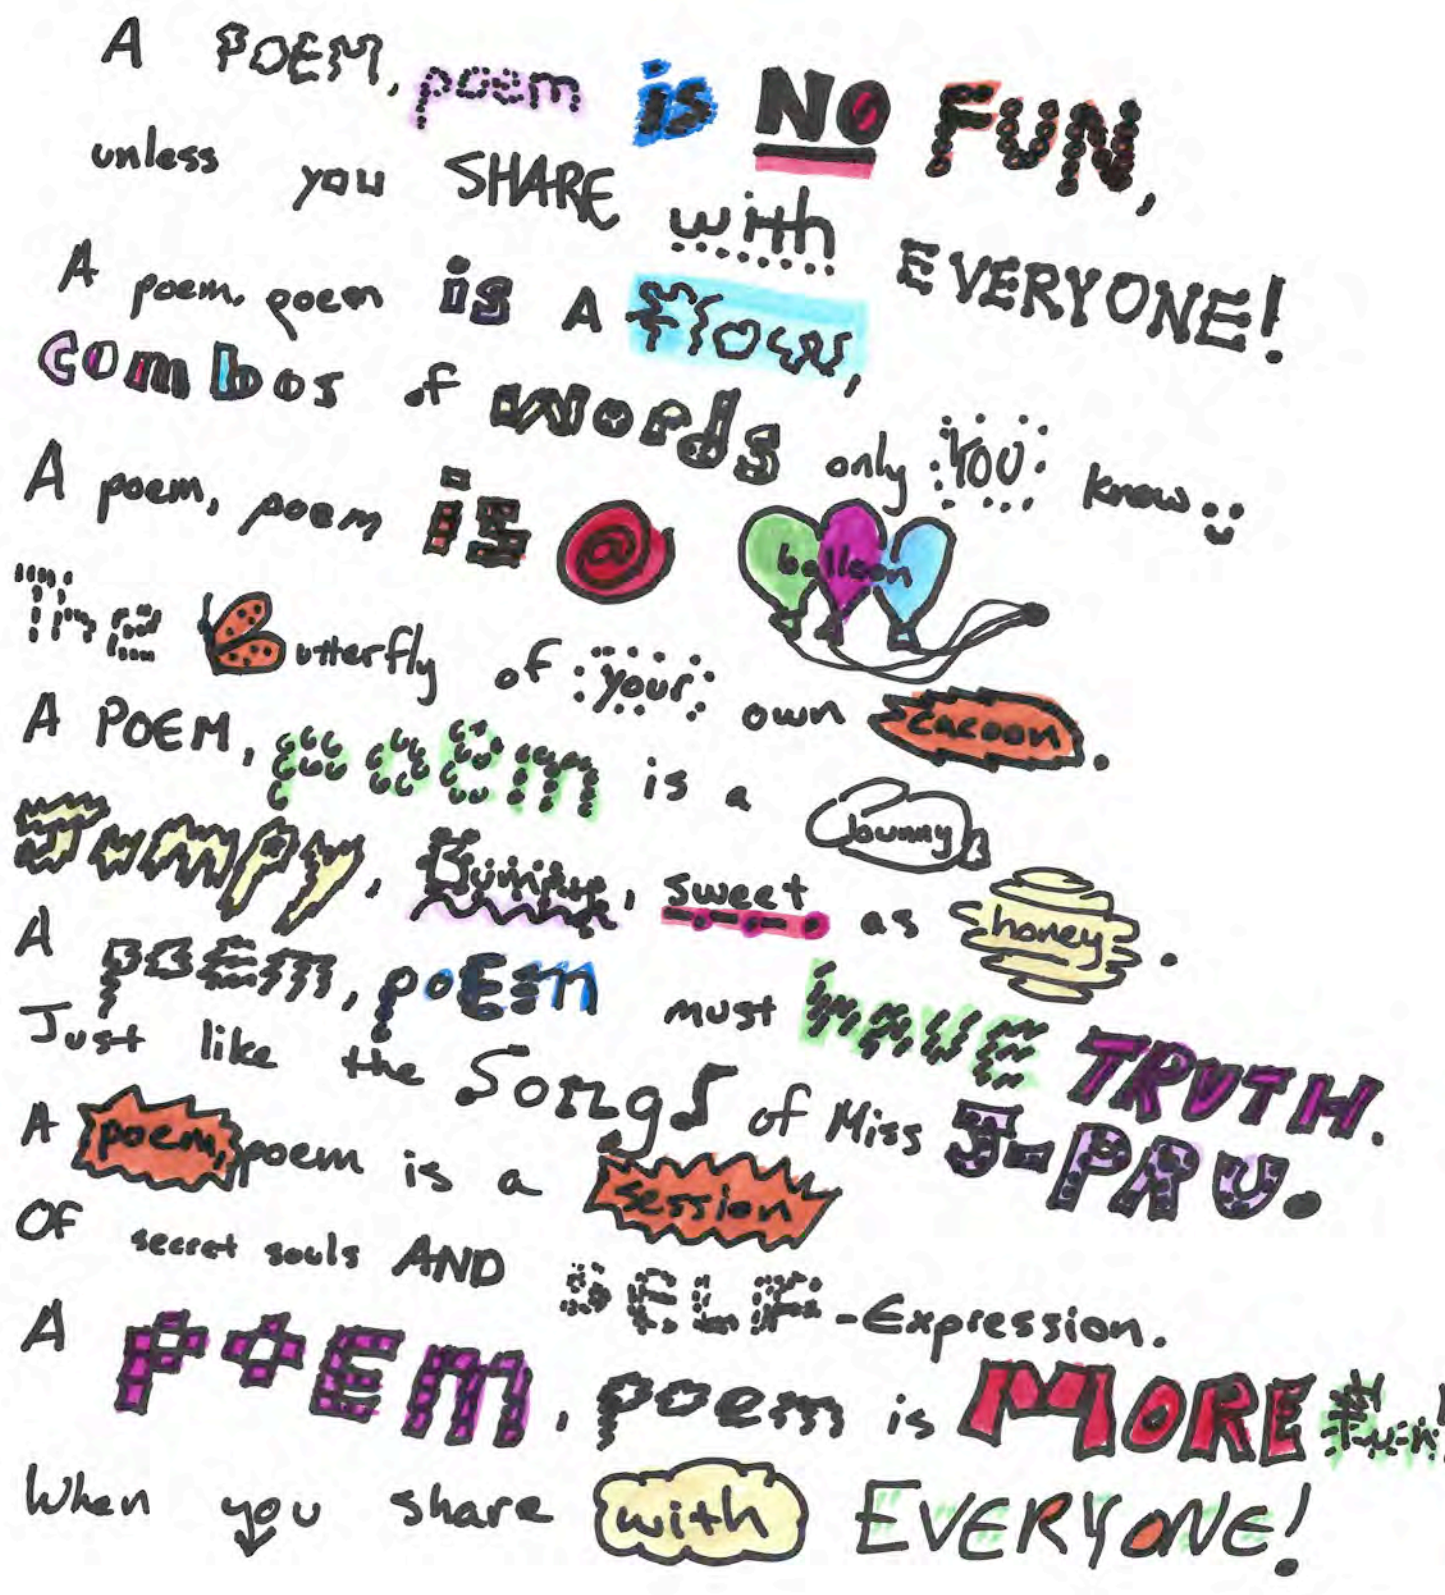 A POEM, poem is NO FUN,
unless you SHARE with EVERYONE!
A poem, poem is A flow,
combos of words only YOU know
A poem, poem is a balloon
The Butterfly of your own cacoon.
A POEM, poem is a bunny
Jumpy, Bumpy, sweet as honey.
A POEM, poEm must have TRUTH.
Just like the Songs of Miss J-PRU.
A poem, poem is a session
Of secret souls AND SELF-Expression.
A POEM, poem is MORE Fun
When you share with EVERYONE!